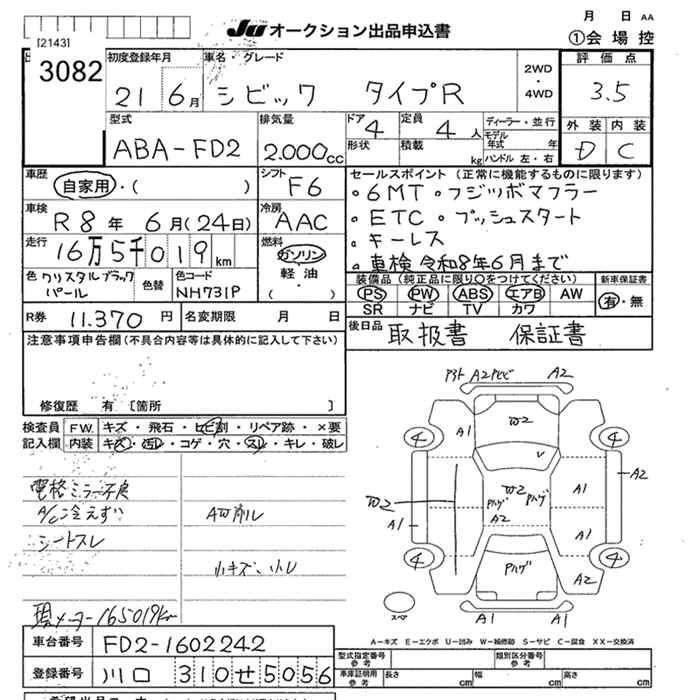 月 日 AA
JU オークション出品申込書
①会場控
[2143]
3082
初度登録年月 21 6月
車名・グレード シビック タイプR
2WD・4WD
評価点 3.5
外装 D 内装 C
型式 ABA-FD2
排気量 2.000cc
ドア 4 形状
定員 4人 積載 kg
ディーラー・並行
モデル年式 年
ハンドル 左・右
車歴 自家用・( )
シフト F6
車検 R8年 6月(24日)
冷房 AAC
走行 16万5千019km
燃料 ガソリン 軽油 ・( )
色 クリスタルブラックパール
色替
色コード NH731P
セールスポイント (正常に機能するものに限ります)
。6MT 。フジツボマフラー
。ETC 。プッシュスタート
。キーレス
。車検 令和8年6月まで
装備品(純正品に限り○をつけてください)
PS PW ABS エアB AW
SR ナビ TV カワ
新車保証書 有・無
R券 11.370円
名変期限 月 日
後日品 取扱書 保証書
注意事項申告欄(不具合内容等は具体的に記入して下さい)
修復歴 有〔箇所 〕
検査員記入欄
F.W. キズ・飛石・ヒビ割・リペア跡・×要
内装 キズ・汚れ・コゲ・穴・スレ・キレ・破レ
電格ミラー不良
A/C冷えず
シートスレ
小キズ、小レ
現メーター165019km
A2 A2
W2
4 4
A1 A2
V
W2 W2
Pハゲ Pハゲ
A2
A1 A1
A1
4 4
Pハゲ
A2
A1 A1
スペア
A-キズ E-エクボ U-凹み W-補修跡 S-サビ C-腐食 XX-交換済
車台番号 FD2-1602242
登録番号 川口 310せ5056
型式指定番号 参考
類別区分番号 参考
車庫証明用 参考 長さ cm 幅 cm 高さ cm